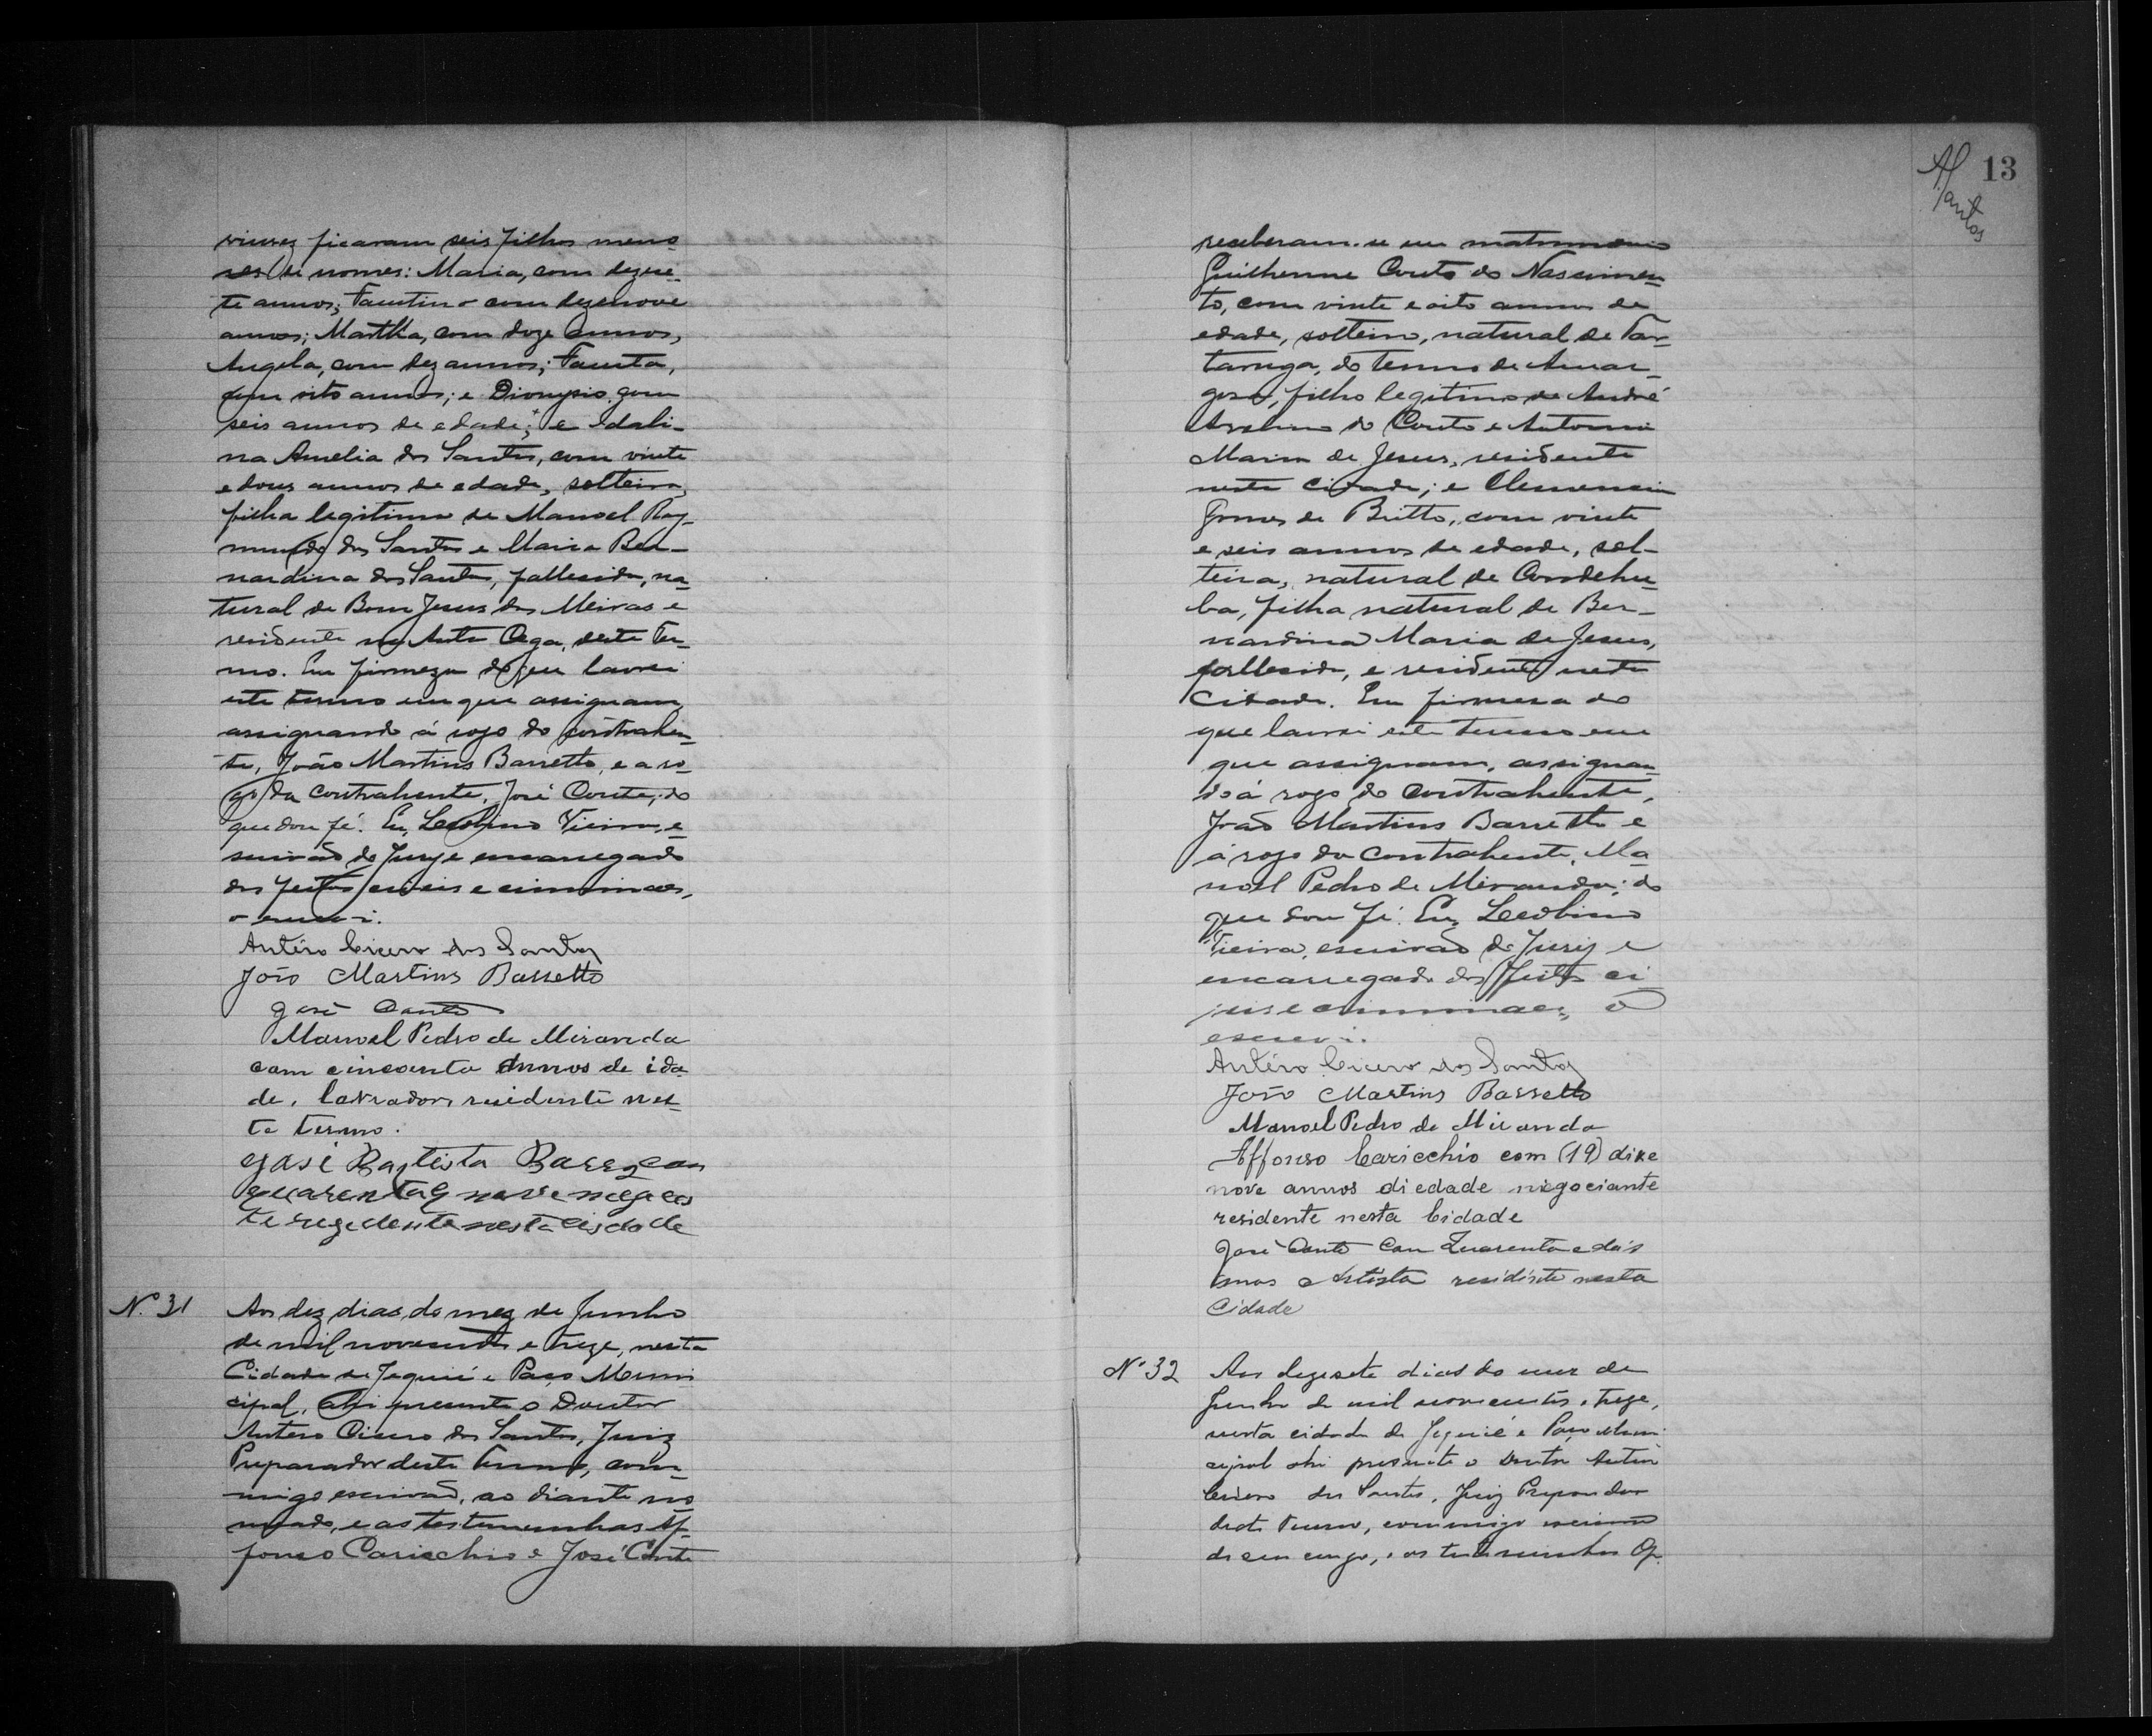 viuvez ficaram seis filhos meno-
res de nomes: Maria, com dezese-
te annos; Faustino com dezenove
annos; Martha, com doze annos,
Angela, com dez annos; Fausta,
com oito annos; e Dionysio com
seis annos de edade; e Idali-
na Amelia dos Santos, com vinte
e dous annos de edade, solteira,
filha legitima de Manoel Ray-
mundo dos Santos e Maria Ber-
nardina dos Santos, fallecida, na-
tural de Bom Jesus dos Meiras e
residente na deste Ter-
mo. Em firmeza do que lavrei
este termo em que assignam,
assignando á rogo do contrahen-
te, João Martins Barretto, e a ro-
go da contrahente, José Couto, do
que dou fé. Eu, Leolino Vieira, es-
crivão do Jury e encarregado
dos feitos civeis e criminaes,
o escrevi.
Antéro Cicero dos Santos
João Martins Barretto
José Couto
Manoel Pedro de Miranda
com cincoenta annos de ida
de, lavrador, residente nes-
te termo.
José Baptista com
quarenta e nove
te rezedente nesta cidade
Nº 31
Aos dez dias do mez de Junho
de mil novecentos e treze, nesta
Cidade de Jequié e Paço Muni
cipal, ahi presente o Doutor
Antero Cicero dos Santos, Juiz
Preparador deste Termo, com-
migo escrivão, ao diante no-
meado, e as testemunhas Af-
fonso Caricchio e José Couto
13
A Santos
receberam-se em matrimonio
Guilherme Couto do Nascimen-
to, com vinte e oito annos de
edade, solteiro, natural de Tar-
taruga, do termo de Amar-
gosa, filho legitimo de André
do Couto e Antonia
Maria de Jesus, residente
nesta cidade; e Clemencia
Gomes de Britto, com vinte
e seis annos de edade, sol-
teira, natural de Condehu-
ba, filha natural de Ber-
nardina Maria de Jesus,
fallecida, e residente nesta
cidade. Em firmesa do
que lavrei este termo em
que assignam, assignan-
do á rogo do contrahente,
João Martins Barretto e
á rogo da contrahente, Ma-
noel Pedro de Miranda; do
que dou fé. Eu, Leolino
Vieira, escrivão do Jury e
encarregado dos feitos ci
veis e criminaes, o
escrevi.
Antéro Cicero dos Santos
João Martins Barretto
Manoel Pedro de Miranda
Affonso Caricchio com (19) dise
nove annos di edade nigociante
residente nesta Cidade
José Couto com Quarenta e dois
anos Artista residente nesta
Cidade
Nº 32
Aos dezesete dias do mez de
Junho de mil novecentos e treze,
nesta cidade de Jequié e Paço Muni
cipal ahi presente o Doutor Antero
Cicero dos Santos, Juiz Preparador
deste Termo, commigo escrivão
de seu cargo, e as testemunhas